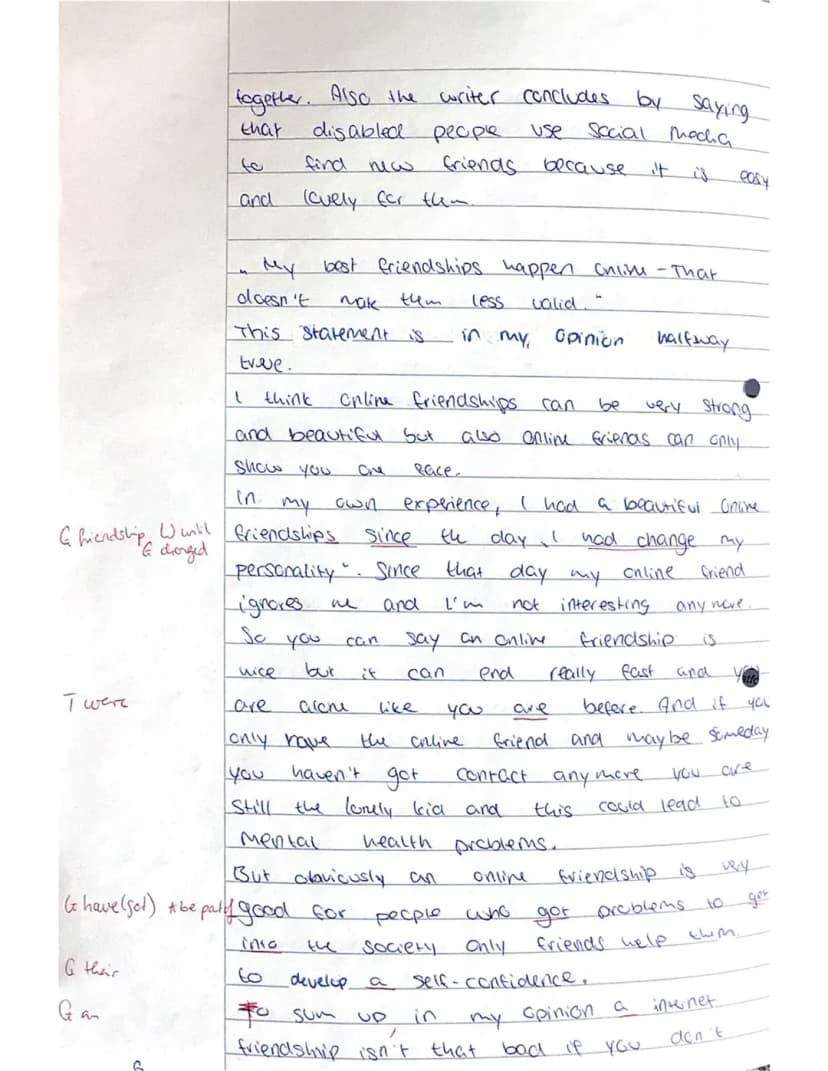 together. Also the writer concludes by saying
that disabled people use Social Media
to find new friends because it is easy
and lovely for them.
„ My best friendships happen online - That
doesn't make them less valid. “
This statement is in my opinion halfway
true.
I think online friendships can be very strong
and beautiful but also online friends can only
show you one face.
In my own experience, I had a beautiful online
G friendship, W until friendships since the day I had change my
G changed personality“. Since that day my online friend
ignores me and I'm not interesting anymore.
So you can say an online friendship is
nice but it can end really fast and you
T were are alone like you are before. And if you
only have the online friend and maybe someday
you haven't got contact anymore you are
still the lonely kid and this could lead to
mental health problems.
But obviously an online friendship is very
G have (got) * be part of good for people who got problems to get
into the society only friends help them
G their to develop a self-confidence.
G an To sum up, in my opinion a internet
friendship isn't that bad if you don't